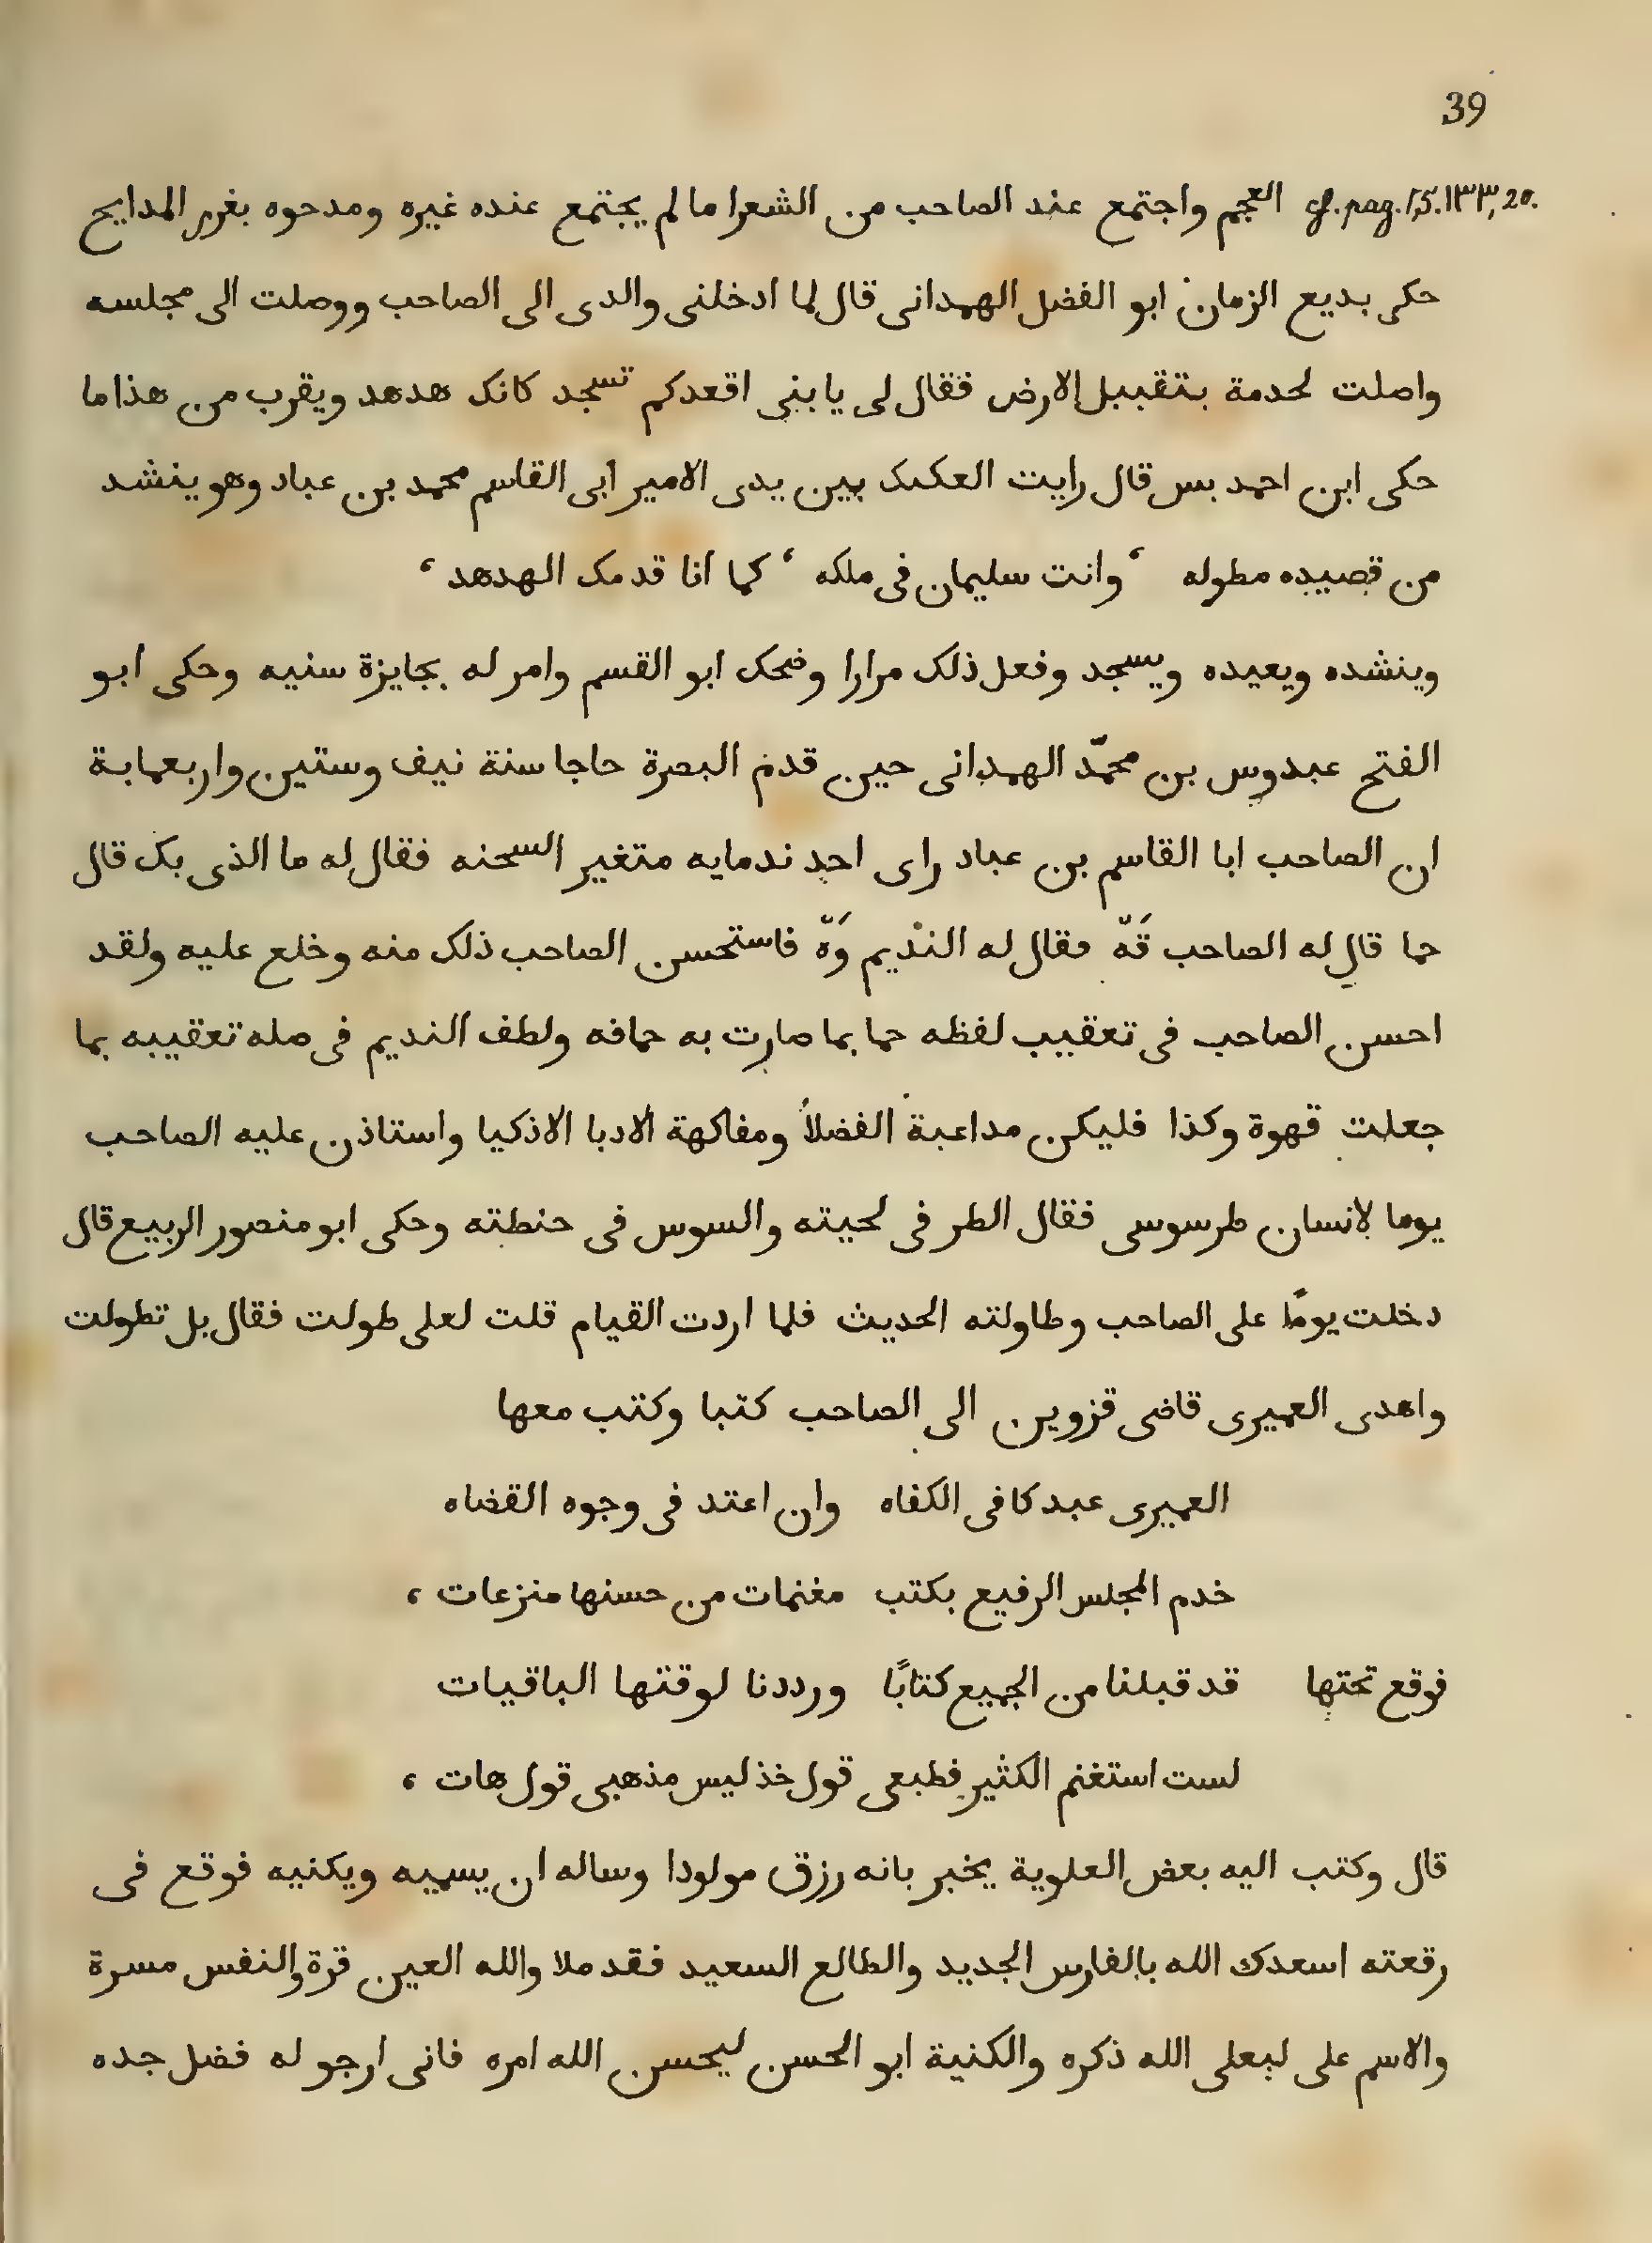 39
cf. pag. 1,5. ١٣٣, 20. العجم واجتمع عند الصاحب من الشعرا ما لم يجتمع عنده غيره ومدحوه بغرر المدايح
حكى بديع الزمان ابو الفضل الهمدانى قال لما ادخلنى والدى الى الصاحب ووصلت الى مجلسه
واصلت لحدمة بتقبيل الارض فقال لى يا بنى اقعدكم تسجد كانك هدهد ويقرب من هذا ما
حكى ابن احمد بس قال رايت العكىك بين يدى الامير ابى القاسم محمد بن عباد وهو ينشد
من قصيده مطوله ، وانت سليمان فى ملكه ، كما انا قدمك الهدهد ،
وينشده ويعيده ويسجد وفعل ذلك مرارا وضحك ابو القسم وامر له بجايزة سنيه وحكى ابو
الفتح عبدوس بن محمّد الهمدانى حين قدم البصرة حاجا سنة نيف وستين واربعماية
ان الصاحب ابا القاسم بن عباد راى احد ندمايه متغير السحنه فقال له ما الذى بك قال
حما قال له الصاحب قَهّ فقال له النديم وَهّ فاستحسن الصاحب ذلك منه وخلع عليه ولقد
احسن الصاحب فى تعقيب لفظه حما بما صارت به حمافه ولطف النديم فى صله تعقيبه بما
جعلت قهوة وكذا فليكن مداعبة الفضلأ ومفاكهة الادبا الاذكيا واستاذن عليه الصاحب
يوما لانسان طرسوسى فقال الطر فى لحيته والسوس فى حنطته وحكى ابو منصور الربيع قال
دخلت يومًا على الصاحب وطاولته الحديث فلما اردت القيام قلت لعلى طولت فقال بل تطولت
واهدى العميرى قاضى قزوين الى الصاحب كتبا وكتب معها
العميرى عبد كافى الكفاه وان اعتد فى وجوه القضاه
خدم المجلس الرفيع بكتب مغنمات من حسنها منزعات ،
فوقع تحتها قد قبلنا من الجميع كتابًا ورددنا لوقتها الباقيات
لست استغنم الكثير فطبعى قول خذ ليس مذهبى قول هات ،
قال وكتب اليه بعض العلوية يخبر بانه رزق مولودا وساله ان يسميه ويكنيه فوقع فى
رقعته اسعدك الله بالفارس الجديد والطالع السعيد فقد ملا والله العين قرة والنفس مسرة
والاسم على ليعلى الله ذكره والكنية ابو الحسن ليحسن الله امره فانى ارجو له فضل جده